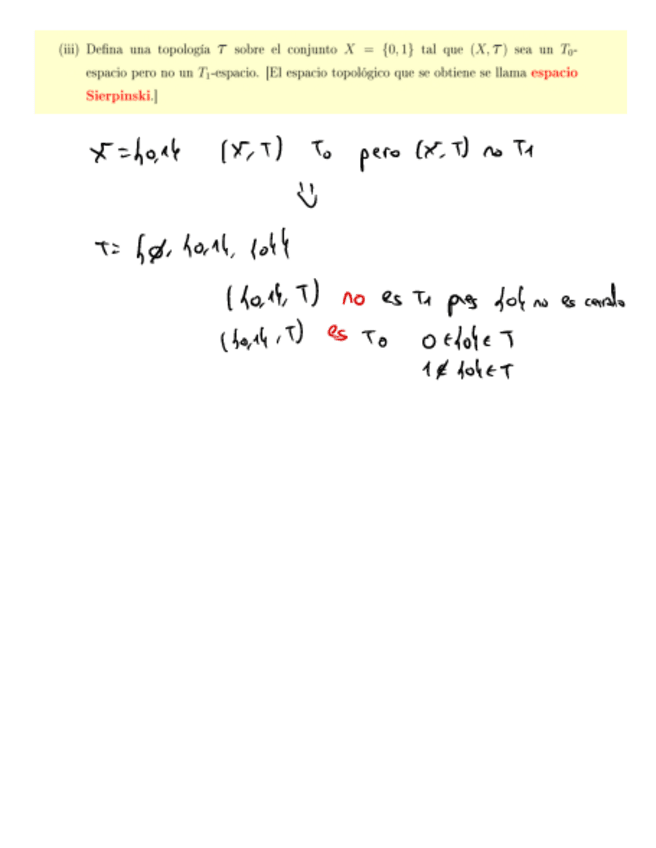 (iii) Defina una topología 𝒯 sobre el conjunto X = {0, 1} tal que (X, 𝒯) sea un T₀-
espacio pero no un T₁-espacio. [El espacio topológico que se obtiene se llama espacio
Sierpinski.]
X = {0,1} (X, T) T₀ pero (X, T) no T₁
T = {∅, {0,1}, {0}}
({0,1}, T) no es T₁ pues {0} no es cerrado
({0,1}, T) es T₀ 0 ∈ {0} ∈ T
1 ∉ {0} ∈ T